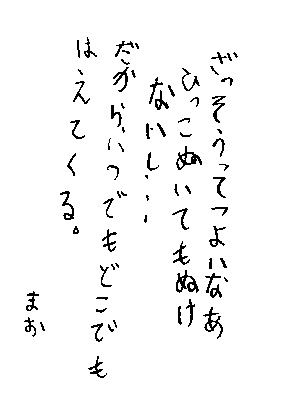 ざっそうってつよいなあ
ひっこぬいてもぬけ
ないし・・・
だからいつでもどこでも
はえてくる。
まお